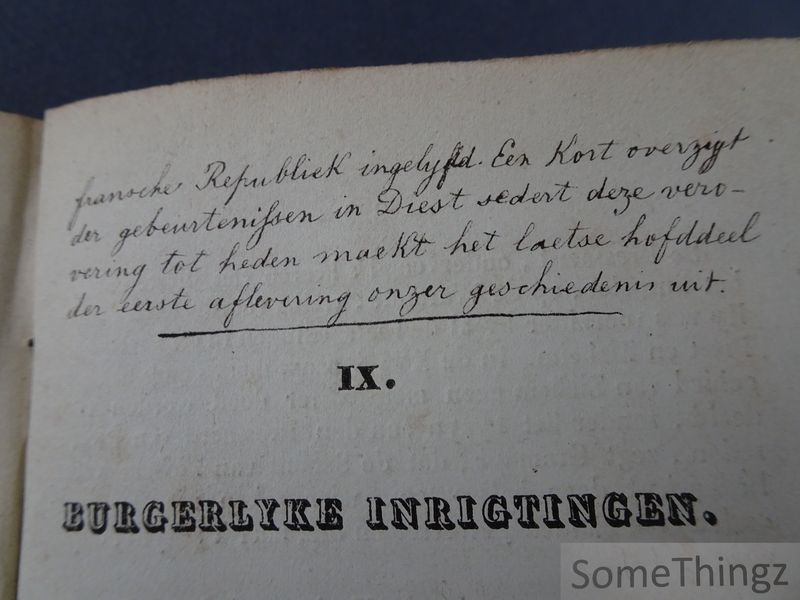 fransche Republiek ingelyfd. Een Kort overzigt
der gebeurtenissen in Diest sedert deze vero-
vering tot heden maekt het laetse hofddeel
der eerste aflevering onzer geschiedenis uit.
IX.
BURGERLYKE INRIGTINGEN.
SomeThingz